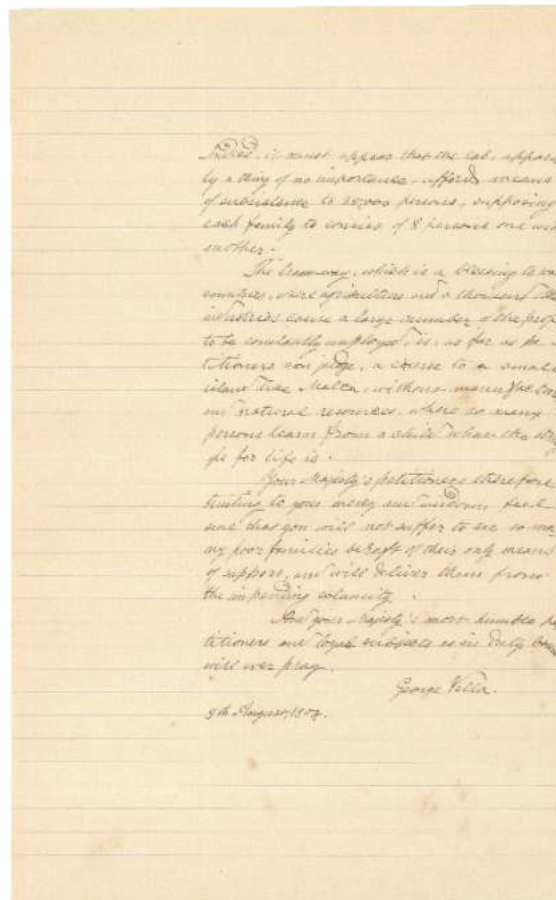 Indeed, it must appear that the cab, apparen
by a thing of no importance, affords means
of subsistence to 20,000 persons, supposing
each family to consist of 8 persons one wi
another.
The tramway, which is a blessing to
countries, were agriculture and a thousand
industries cause a large number of the peop
to be constantly employed, is, as far as pe-
titioners can judge, a curse to a small
island like Malta, without manufac
and natural resources, where so many
persons learn from a child what the
gle for life is.
Your Majesty's petitioners therefore
trusting to your mercy and wisdom feel
sure that you will not suffer to see so ma
ny poor families bereft of their only means
of support, and will deliver them from
the impending calamity.
And your Majesty's most humble pe
titioners and loyal subjects as in duty bound
will ever pray.
George Vella.
9th August,